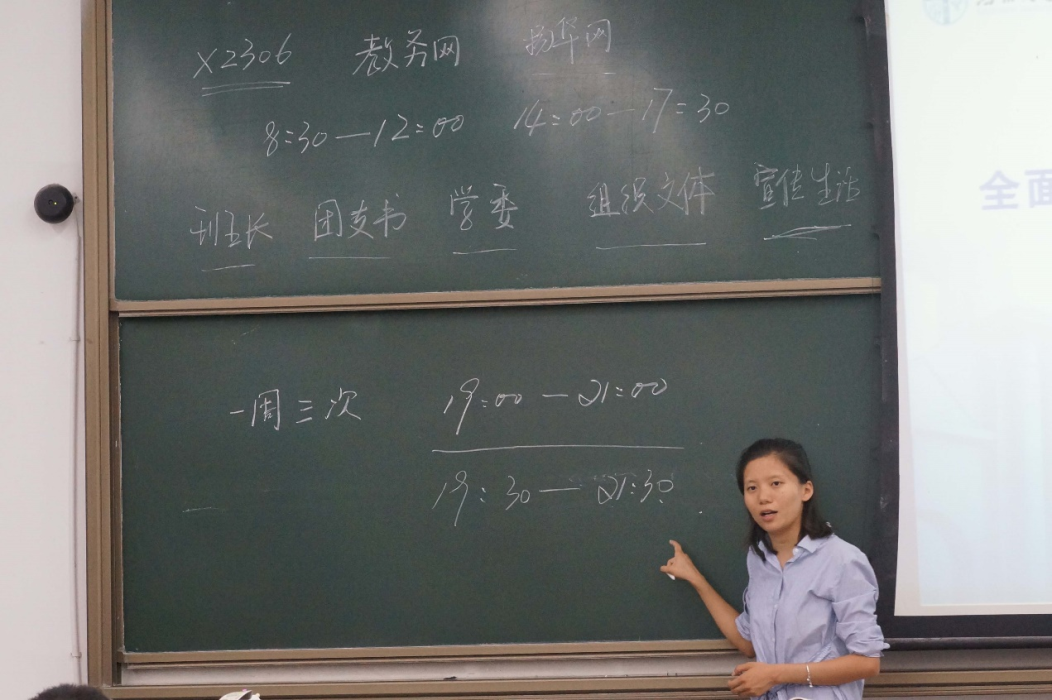 X2306 教务网 扬华网
8:30—12:00 14:00—17:30
班长 团支书 学委 组织文体 宣传生活
一周三次 19:00—21:00
19:30—21:30
全面